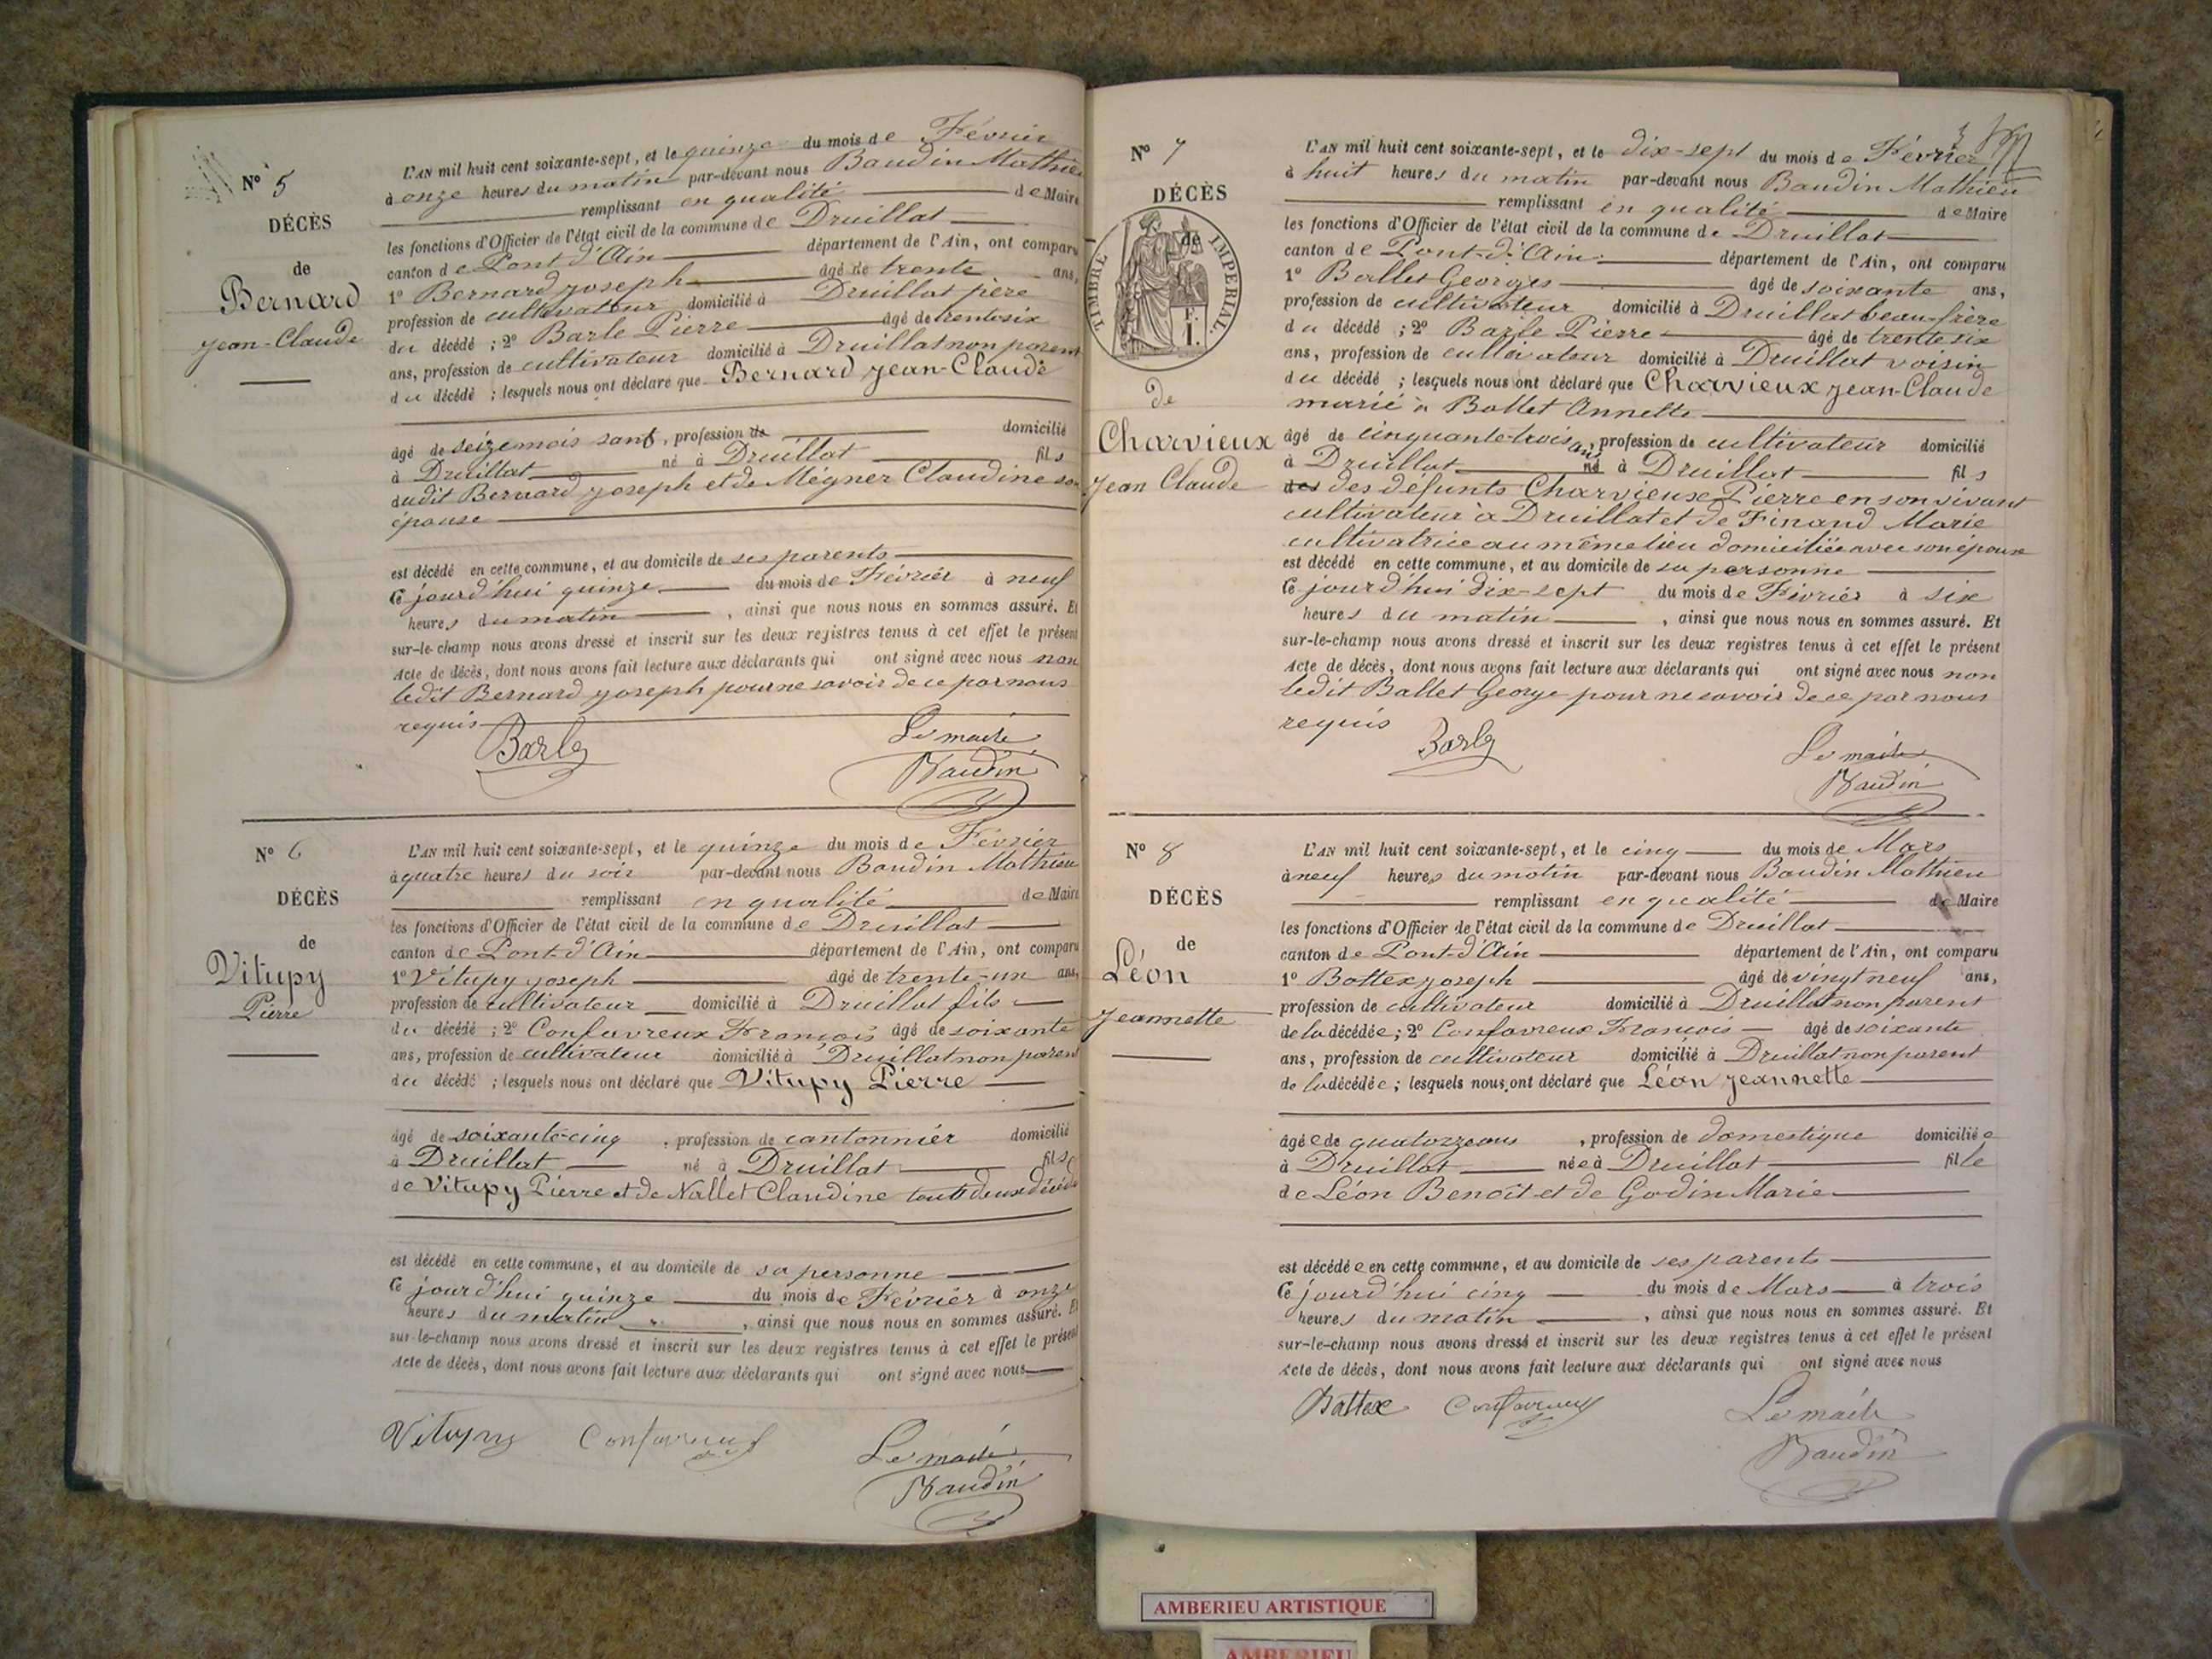 N° 5
DÉCÈS
de
Bernard
Jean-Claude
L'AN mil huit cent soixante-sept, et le quinze du mois de Février
à onze heures du matin par-devant nous Baudin Mathieu
remplissant en qualité de Maire
les fonctions d'Officier de l'état civil de la commune de Druillat
canton de Pont d'Ain département de l'Ain, ont comparu
1° Bernard Joseph âgé de trente ans,
profession de cultivateur domicilié à Druillat père
du décédé ; 2° Barle Pierre âgé de trente six
ans, profession de cultivateur domicilié à Druillat non parent
du décédé ; lesquels nous ont déclaré que Bernard Jean-Claude
âgé de seize mois sans, profession de domicilié
à Druillat né à Druillat fils
dudit Bernard Joseph et de Mégner Claudine son
épouse
est décédé en cette commune, et au domicile de ses parents
Ce jourd'hui quinze du mois de Février à neuf
heures du matin, ainsi que nous nous en sommes assuré. Et
sur-le-champ nous avons dressé et inscrit sur les deux registres tenus à cet effet le présent
Acte de décès, dont nous avons fait lecture aux déclarants qui ont signé avec nous non
ledit Bernard Joseph pour ne savoir de ce par nous
requis
Barle
Le maire
Baudin
N° 6
DÉCÈS
de
Vitupy
Pierre
L'AN mil huit cent soixante-sept, et le quinze du mois de Février
à quatre heures du soir par-devant nous Baudin Mathieu
remplissant en qualité de Maire
les fonctions d'Officier de l'état civil de la commune de Druillat
canton de Pont-d'Ain département de l'Ain, ont comparu
1° Vitupy Joseph âgé de trente-un ans,
profession de cultivateur domicilié à Druillat fils
du décédé ; 2° Confavreux François âgé de soixante
ans, profession de cultivateur domicilié à Druillat non parent
du décédé ; lesquels nous ont déclaré que Vitupy Pierre
âgé de soixante-cinq, profession de cantonnier domicilié
à Druillat né à Druillat fils
de Vitupy Pierre et de Nallet Claudine tout deux décédé
est décédé en cette commune, et au domicile de sa personne
Ce jourd'hui quinze du mois de Février à onze
heures du matin, ainsi que nous nous en sommes assuré. Et
sur-le-champ nous avons dressé et inscrit sur les deux registres tenus à cet effet le présent
Acte de décès, dont nous avons fait lecture aux déclarants qui ont signé avec nous
Vitupy Confavreux
Le maire
Baudin
N° 7
DÉCÈS
de
TIMBRE IMPERIAL.
de
Charvieux
Jean Claude
3
L'AN mil huit cent soixante-sept, et le dix-sept du mois de Février
à huit heures du matin par-devant nous Baudin Mathieu
remplissant en qualité de Maire
les fonctions d'Officier de l'état civil de la commune de Druillat
canton de Pont-d'Ain département de l'Ain, ont comparu
1° Ballet Georges âgé de soixante ans,
profession de cultivateur domicilié à Druillat beau-frère
du décédé ; 2° Barle Pierre âgé de trente six
ans, profession de cultivateur domicilié à Druillat voisin
du décédé ; lesquels nous ont déclaré que Charvieux Jean-Claude
marié à Ballet Annette
âgé de cinquante-trois ans, profession de cultivateur domicilié
à Druillat né à Druillat fils
des des défunts Charvieux Pierre en son vivant
cultivateur à Druillat et de Finand Marie
cultivatrice au même lieu domiciliée avec son époux
est décédé en cette commune, et au domicile de sa personne
Ce jourd'hui dix-sept du mois de Février à six
heures du matin, ainsi que nous nous en sommes assuré. Et
sur-le-champ nous avons dressé et inscrit sur les deux registres tenus à cet effet le présent
Acte de décès, dont nous avons fait lecture aux déclarants qui ont signé avec nous non
ledit Ballet George pour ne savoir de ce par nous
requis
Barle
Le maire
Baudin
N° 8
DÉCÈS
de
Léon
Jeannette
L'AN mil huit cent soixante-sept, et le cinq du mois de Mars
à neuf heures du matin par-devant nous Baudin Mathieu
remplissant en qualité de Maire
les fonctions d'Officier de l'état civil de la commune de Druillat
canton de Pont-d'Ain département de l'Ain, ont comparu
1° Bottex Joseph âgé de vingt neuf ans,
profession de cultivateur domicilié à Druillat non parent
de la décédée ; 2° Confavreux François âgé de soixante
ans, profession de cultivateur domicilié à Druillat non parent
de la décédée ; lesquels nous ont déclaré que Léon Jeannette
âgée de quatorze ans, profession de domestique domiciliée
à Druillat née à Druillat fille
de Léon Benoît et de Godin Marie
est décédée en cette commune, et au domicile de ses parents
Ce jourd'hui cinq du mois de Mars à trois
heures du matin, ainsi que nous nous en sommes assuré. Et
sur-le-champ nous avons dressé et inscrit sur les deux registres tenus à cet effet le présent
Acte de décès, dont nous avons fait lecture aux déclarants qui ont signé avec nous
Bottex Confavreux
Le maire
Baudin
AMBERIEU ARTISTIQUE
AMBERIEU